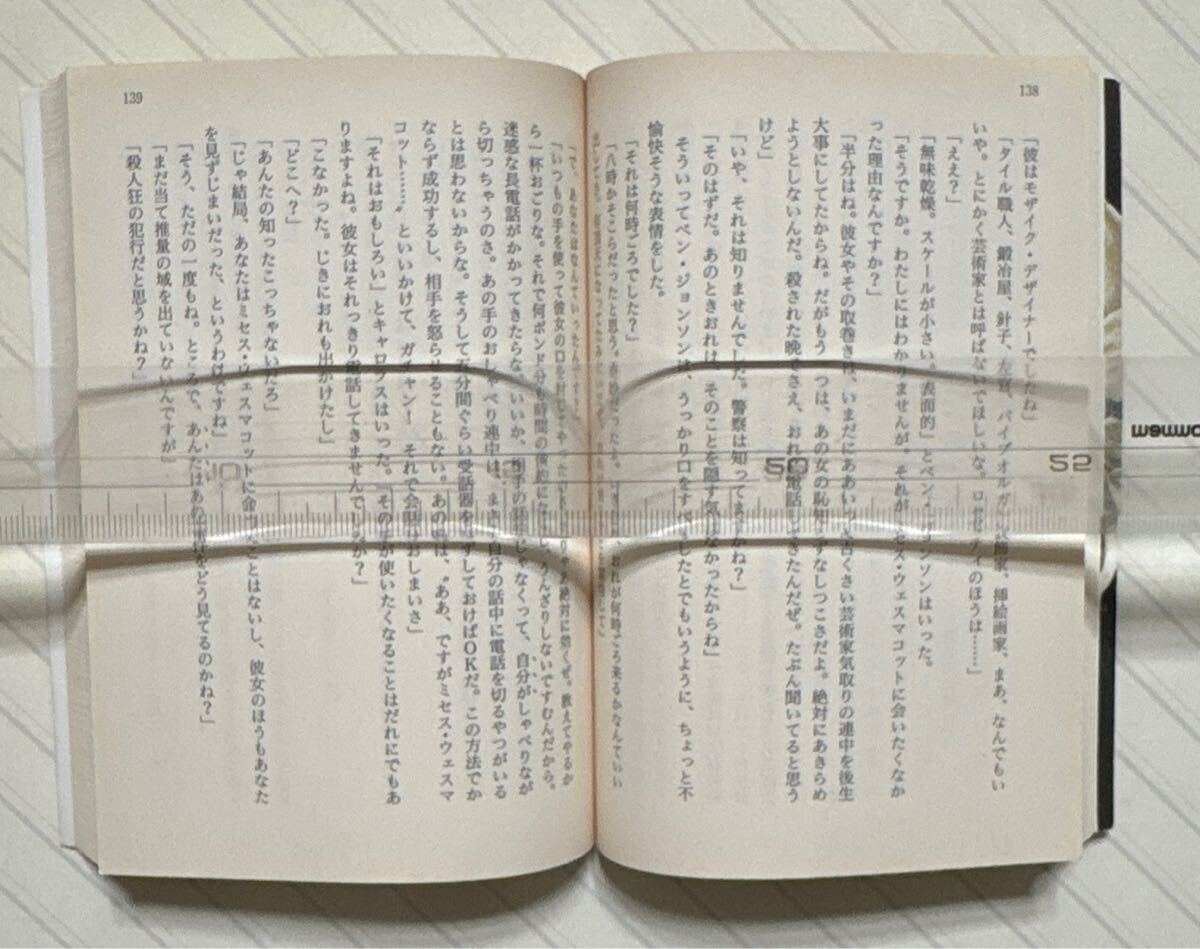 138
「彼はモザイク・デザイナーでしたね」
「タイル職人、鍛冶屋、針子、左官、パイプオルガン 飾家、挿絵画家、まあ、なんでもい
いや。とにかく芸術家とは呼ばないでほしいな。ロセッティのほうは……」
「ええ？」
「無味乾燥。スケールが小さい。表面的」とベン・ジョンソンはいった。
「そうですか。わたしにはわかりませんが。それが ミセス・ウェスマコットに会いたくなか
った理由なんですか？」
「半分はね。彼女やその取巻きは、いまだにああいった古くさい芸術家気取りの連中を後生
大事にしてたからね。だがもう一つは、あの女の恥知らずなしつこさだよ。絶対にあきらめ
ようとしないんだ。殺された晩でさえ、おれに電話してきたんだぜ。たぶん聞いてると思う
けど」
「いや、それは知りませんでした。警察は知ってますかね？」
「そのはずだ。あのときおれは、そのことを隠す気はなかったからね」
そういってベン・ジョンソンは、うっかり口をすべらしたとでもいうように、ちょっと不
愉快そうな表情をした。
「それは何時ごろでした？」
「八時かそこらだったと思う。 おれが何時ごろ来るかなんていい
139
「で、あなたはなんていったんです？」
「いつもの手を使って彼女の口を封じてやった 絶対に効くぜ。教えてやるか
ら一杯おごりな。それで何ポンド分も時間の うんざりしないですむんだから。
迷惑な長電話がかかってきたらな、いいか、相手の話 じゃなくって、自分がしゃべりなが
ら切っちゃうのさ。あの手のおしゃべり連中は、まさか自分の話中に電話を切るやつがいる
とは思わないからな。そうして五分間ぐらい受話器をはずしておけばＯＫだ。この方法でか
ならず成功するし、相手を怒らせることもない。あの晩は、〝ああ、ですがミセス・ウェスマ
コット……〟といいかけて、ガチャン！　それで会話はおしまいさ」
「それはおもしろい」とキャロラスはいった。「その手が使いたくなることはだれにでもあ
りますよね。彼女はそれっきり電話してきませんでしたか？」
「こなかった。じきにおれも出かけたし」
「どこへ？」
「あんたの知ったこっちゃないだろ」
「じゃ結局、あなたはミセス・ウェスマコットに会ったことはないし、彼女のほうもあなた
を見ずじまいだった、というわけですね」
「そう、ただの一度もね。ところで、あんたはあの事件をどう見てるのかね？」
「まだ当て推量の域を出ていないんですが」
「殺人狂の犯行だと思うかね？」
50
52